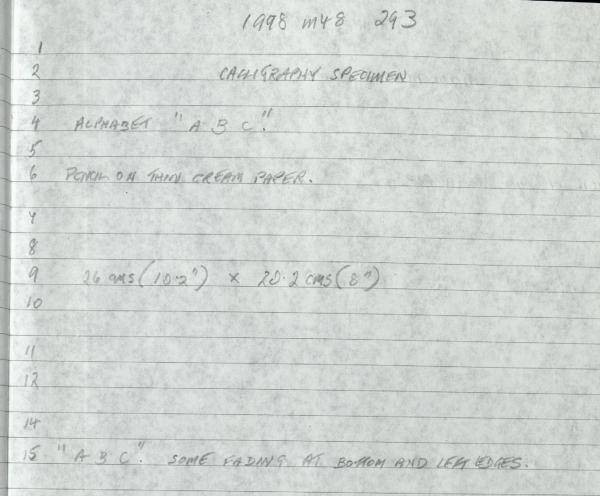 1998 M48 293
1
2 CALLIGRAPHY SPECIMEN
3
4 ALPHABET "A B C".
5
6 PENCIL ON THIN CREAM PAPER.
7
8
9 26 cms (10.2") x 20.2 cms (8")
10
11
12
14
15 "A B C". SOME FADING AT BOTTOM AND LEFT EDGES.